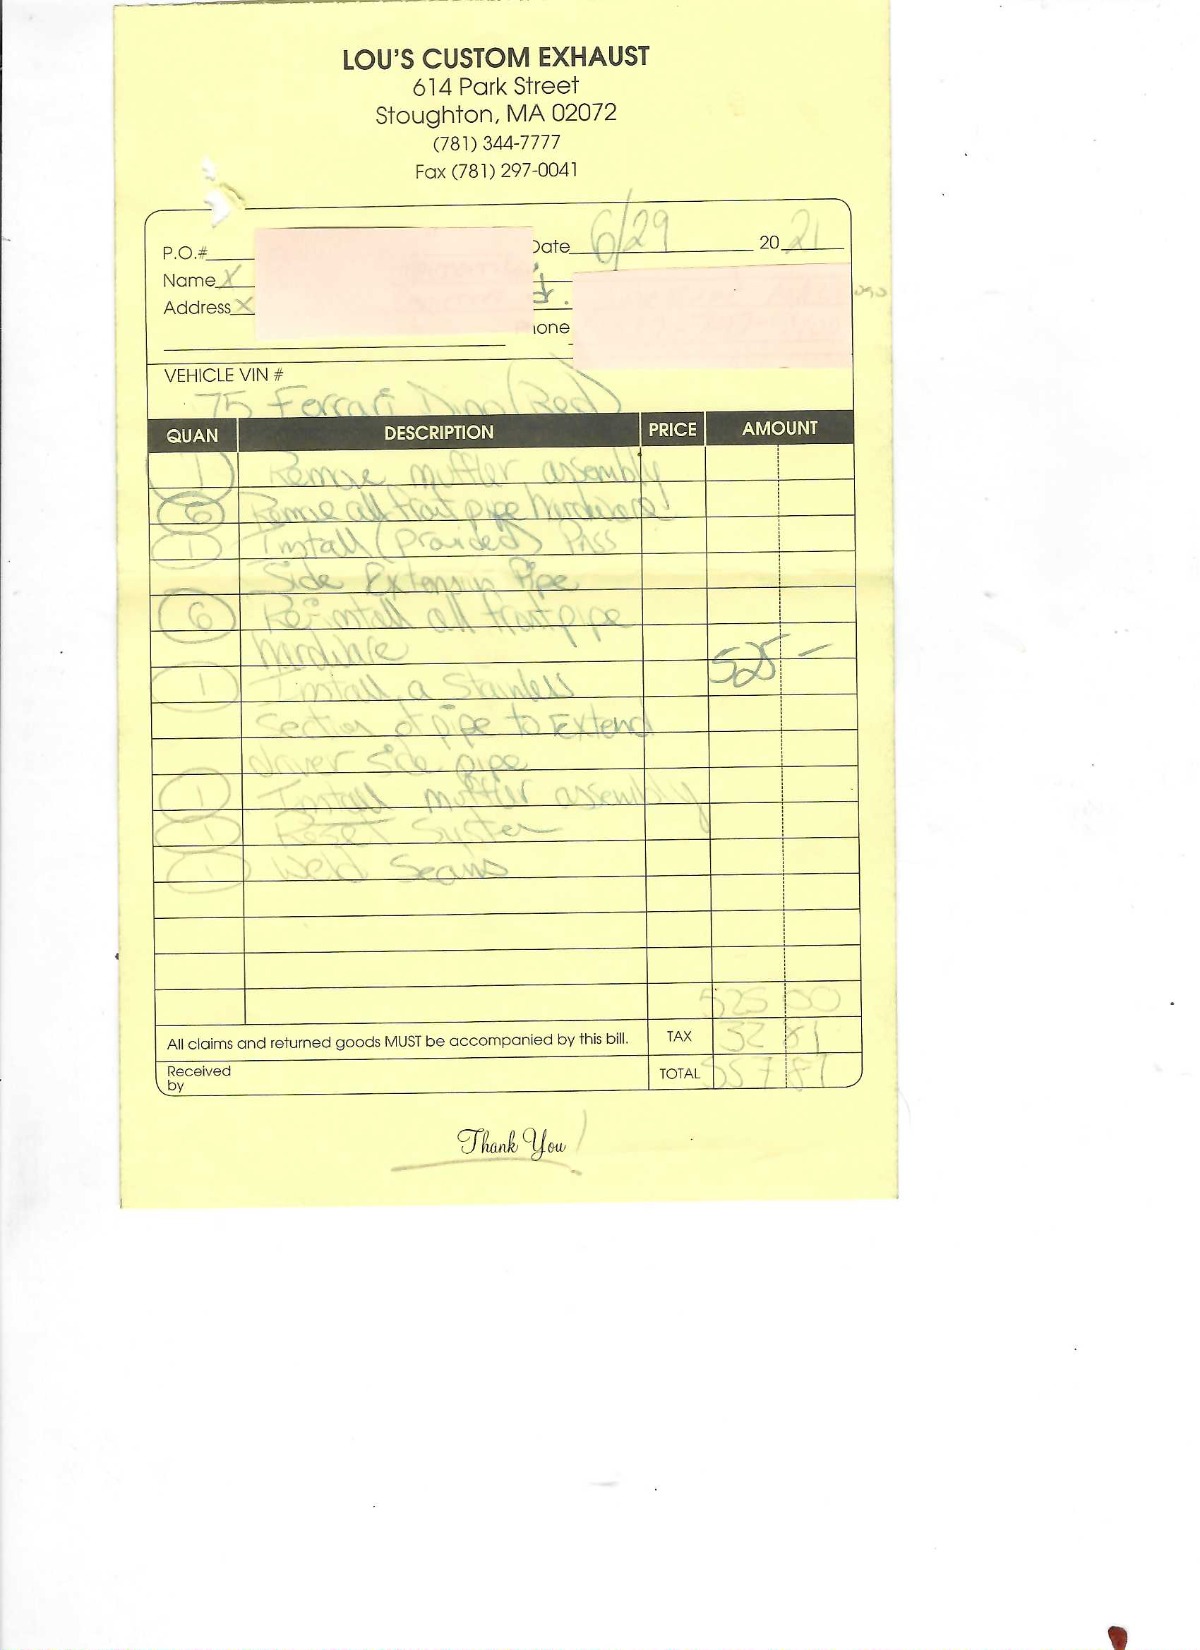 LOU'S CUSTOM EXHAUST
614 Park Street
Stoughton, MA 02072
(781) 344-7777
Fax (781) 297-0041
P.O.# Date 6/29 20 21
Name X
Address X
VEHICLE VIN #
75 Ferrari Dino (Red)
QUAN DESCRIPTION PRICE AMOUNT
1 Remove muffler assembly
6 Remove all front pipe hardware!
1 Install (Provided) Pass
Side Extension Pipe
6 Re-install all front pipe
hardware 525 —
1 Install a Stainless
Section of pipe to Extend
driver side pipe
1 Install muffler assembly
1 Reset System
1 Weld Seams
525 00
All claims and returned goods MUST be accompanied by this bill. TAX 32 81
Received by TOTAL 557 81
Thank You!